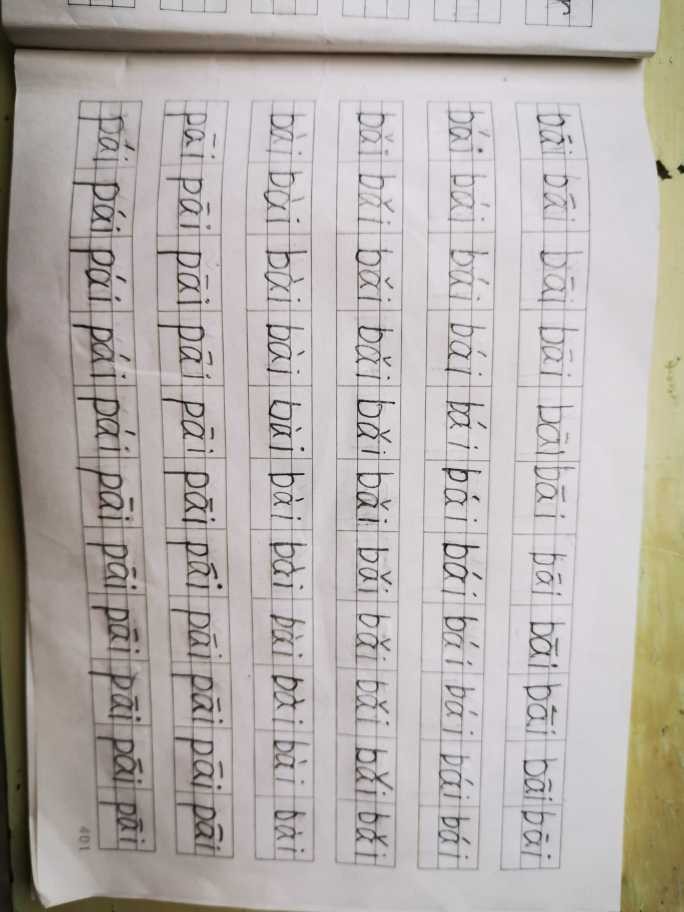 bāi bāi bāi bāi bāi bāi bāi bāi bāi bāi bāi
bái bái bái bái bái bái bái bái bái bái bái
bǎi bǎi bǎi bǎi bǎi bǎi bǎi bǎi bǎi bǎi bǎi
bài bài bài bài bài bài bài bài bài bài bài
pāi pāi pāi pāi pāi pāi pāi pāi pāi pāi pāi
pái pái pái pái pái pāi pāi pāi pāi pāi pāi
401